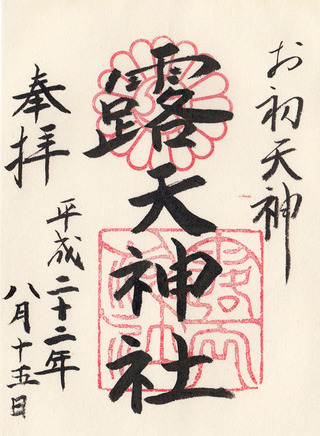 お初天神
露天神社
奉拝
平成二十二年
八月十五日